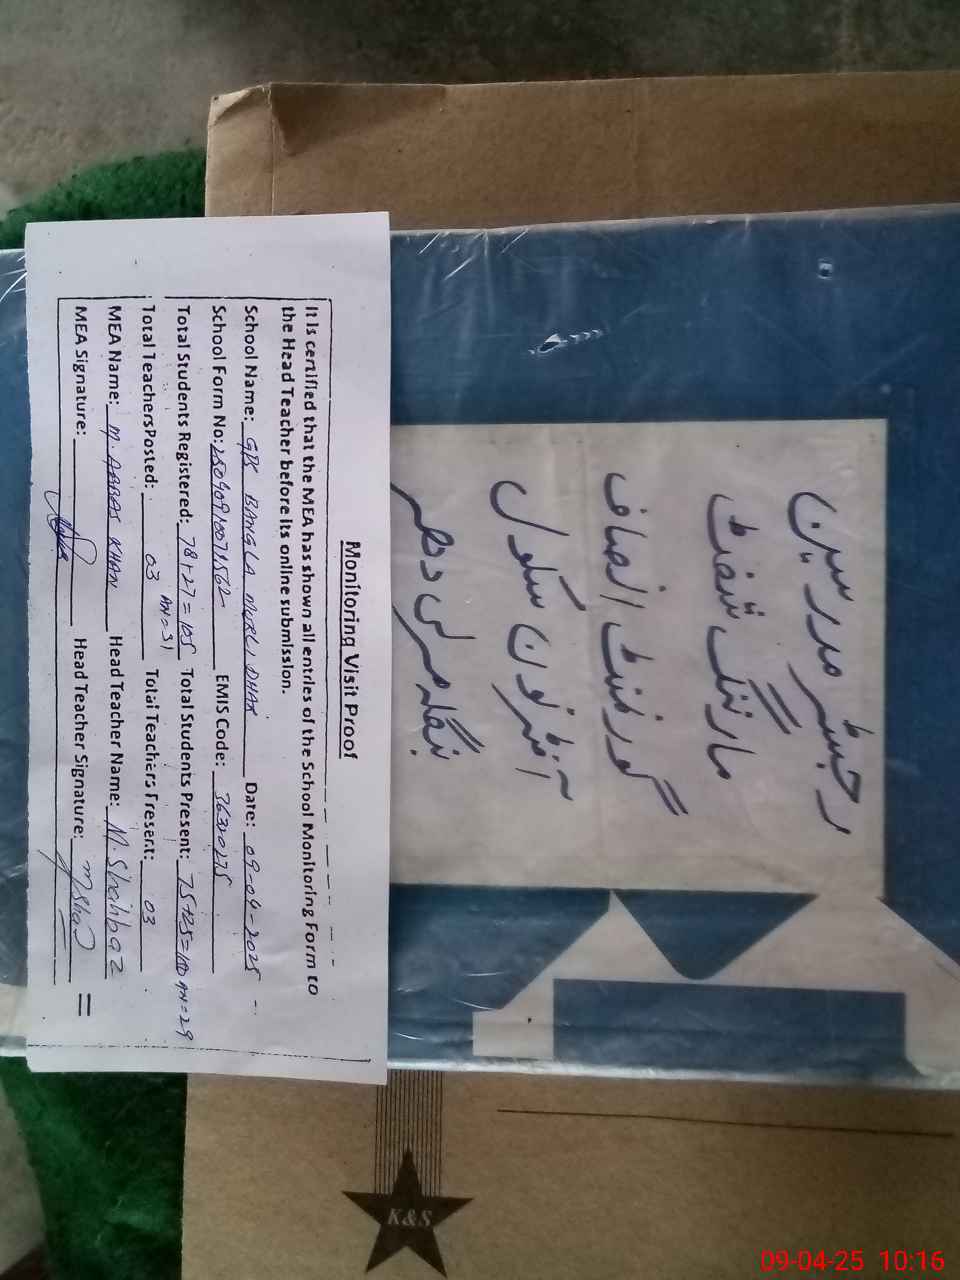 Monitoring Visit Proof
It is certified that the MEA has shown all entries of the School Monitoring Form to
the Head Teacher before its online submission.
School Name: GPS BANGLA MURLI DHAR Date: 09-04-2025
School Form No: EMIS Code: 36320275
Total Students Registered: 78+27=105 Total Students Present: 75+25=100 AN=29
AN=31
Total TeachersPosted: 03 Total Teachers Present: 03
MEA Name: M. ABBAS KHAN Head Teacher Name: M. Shahbaz
MEA Signature: Head Teacher Signature:
رجسٹر مدرسین
مارننگ شفٹ
گورنمنٹ انصاف
آفٹرنون سکول
بنگلہ مرلی دھر
K&S
09-04-25 10:16